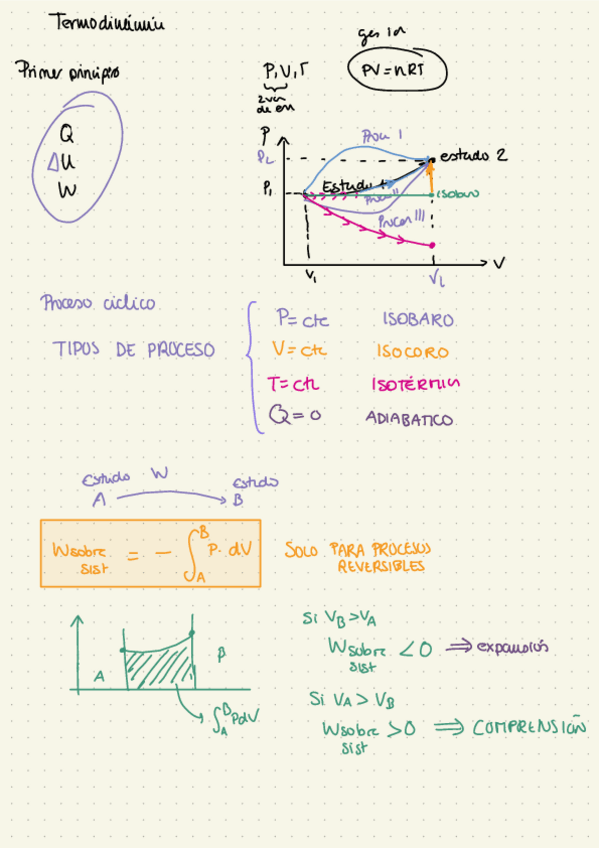 Termodinámica
gas id
Primer principio
P, V, T
PV = nRT
2 var
Q
ΔU
W
P
P2
Proceso I
estado 2
P1
Estado 1
Proceso II
isobaro
Proceso III
V1
V2
V
Proceso cíclico
TIPOS DE PROCESO
P = cte ISOBARO
V = cte ISOCORO
T = cte ISOTÉRMICO
Q = 0 ADIABATICO
Estado W Estado
A B
W sobre sist = - ∫_A^B P. dV
SOLO PARA PROCESOS
REVERSIBLES
A
B
∫_A^B PdV
Si VB > VA
W sobre sist < 0 ⇒ expansión
Si VA > VB
W sobre sist > 0 ⇒ COMPRENSIÓN